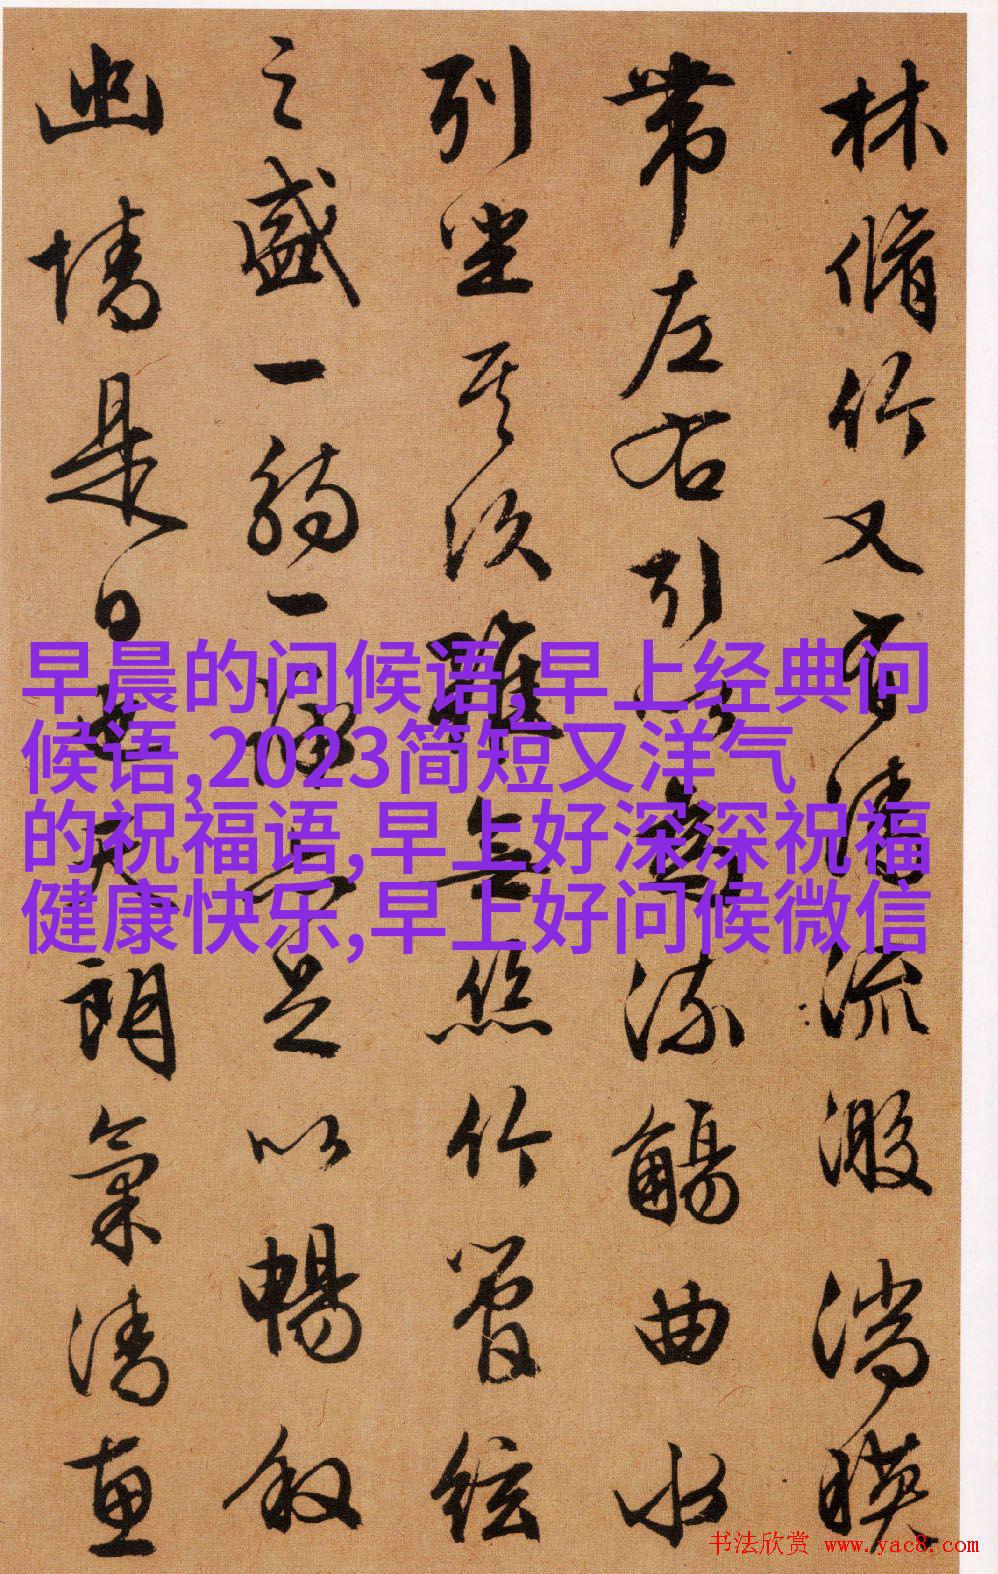 林脩竹又有清流激湍映
帶左右引以為流觴曲水
列坐其次雖無絲竹管絃
之盛一觴一詠亦足以暢叙
幽情是日也天朗氣清惠
早晨的问候语,早上经典问
候语,2023简短又洋气
的祝福语,早上好深深祝福
健康快乐,早上好问候微信
书法欣赏 www.yac8.com